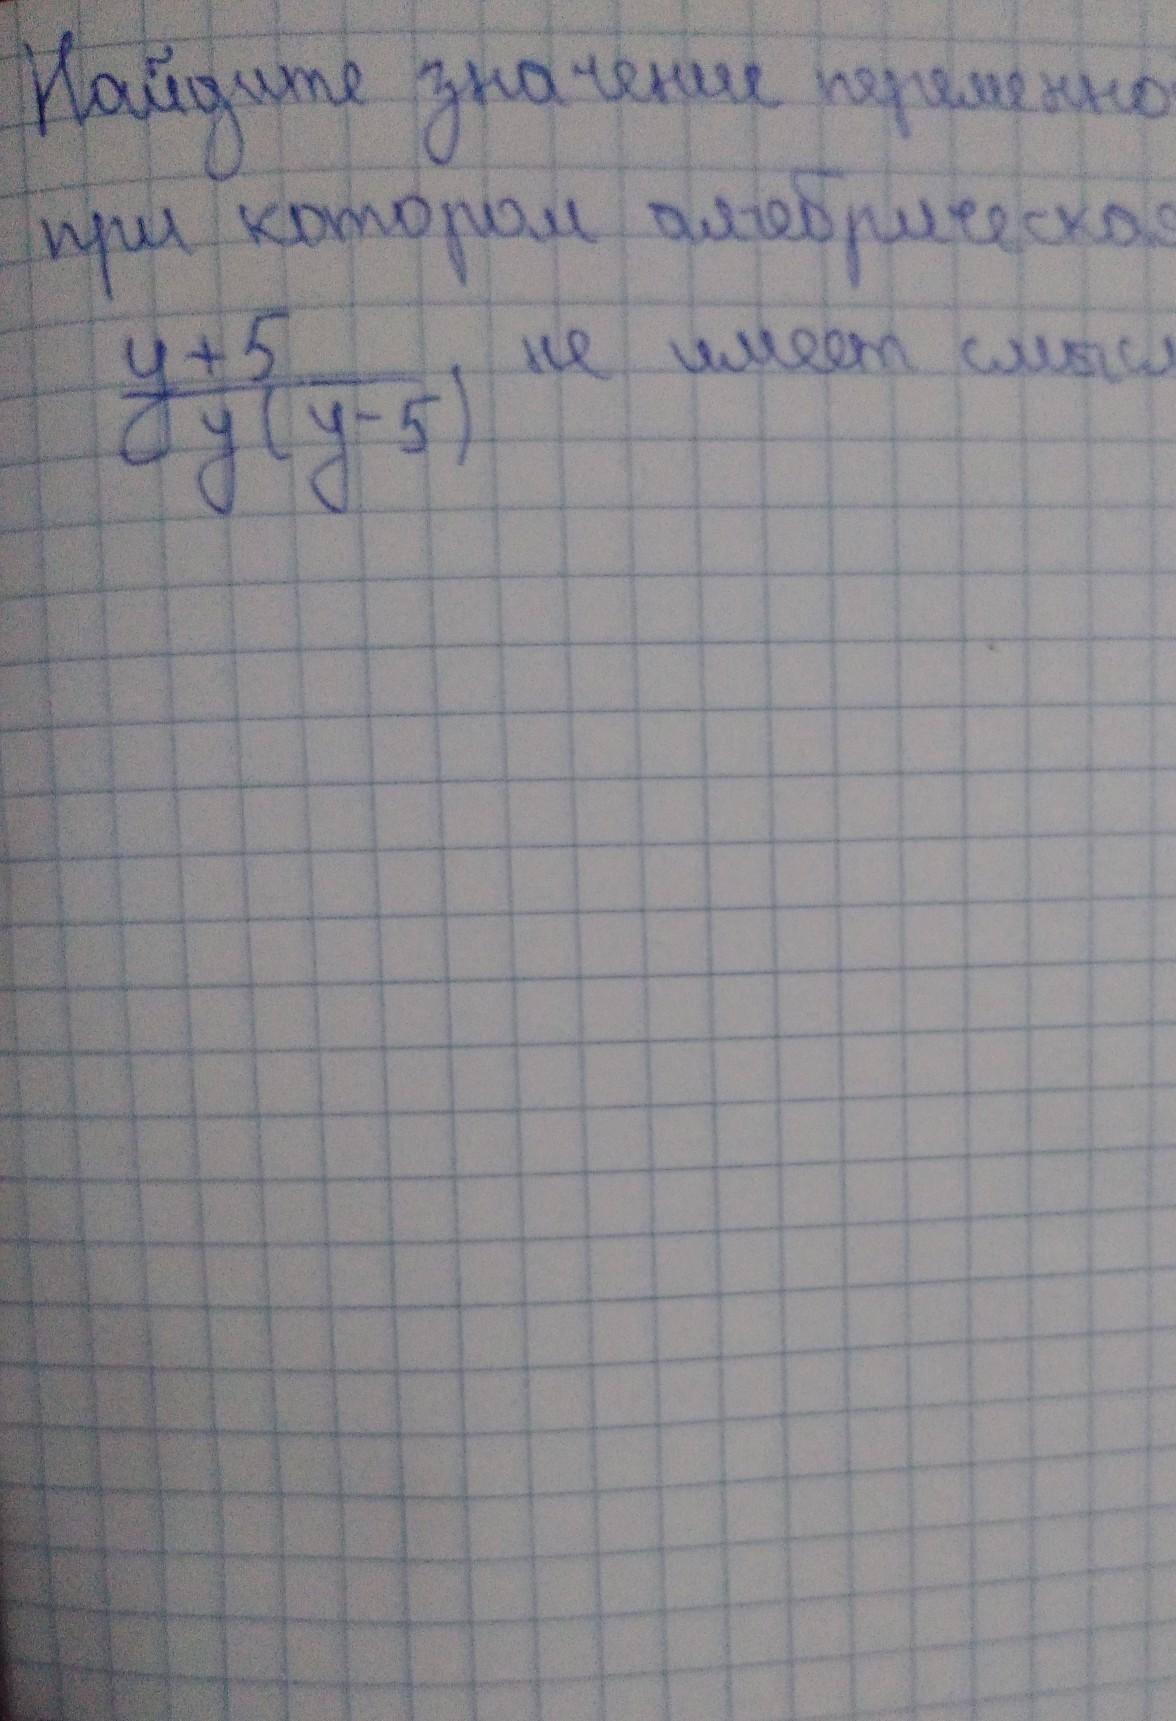 Найдите значение переменно
при котором алгебрическая
y+5
y(y-5) , не имеет смысл